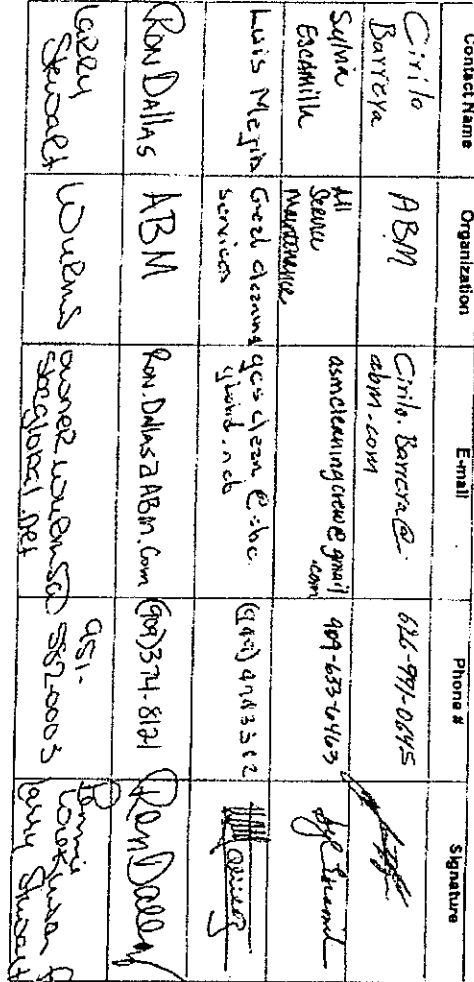 Contact Name Organization E-mail Phone # Signature
Cirilo
Barrera
ABM
Cirilo.Barrera@
abm.com
626-991-0645
Sylvia
Escamilla
All
Service
Maintenance
asmcleaningcrew@gmail
.com
909-633-6463
Luis Mejia
Great cleaning
services
gcs clean@sbc
Ron Dallas
ABM
Ron.Dallas@ABM.Com
(909)374-8121
Ron Dallas
Larry
Stewart
owner
sbcglobal.net
951-
582-0003
Larry Stewart